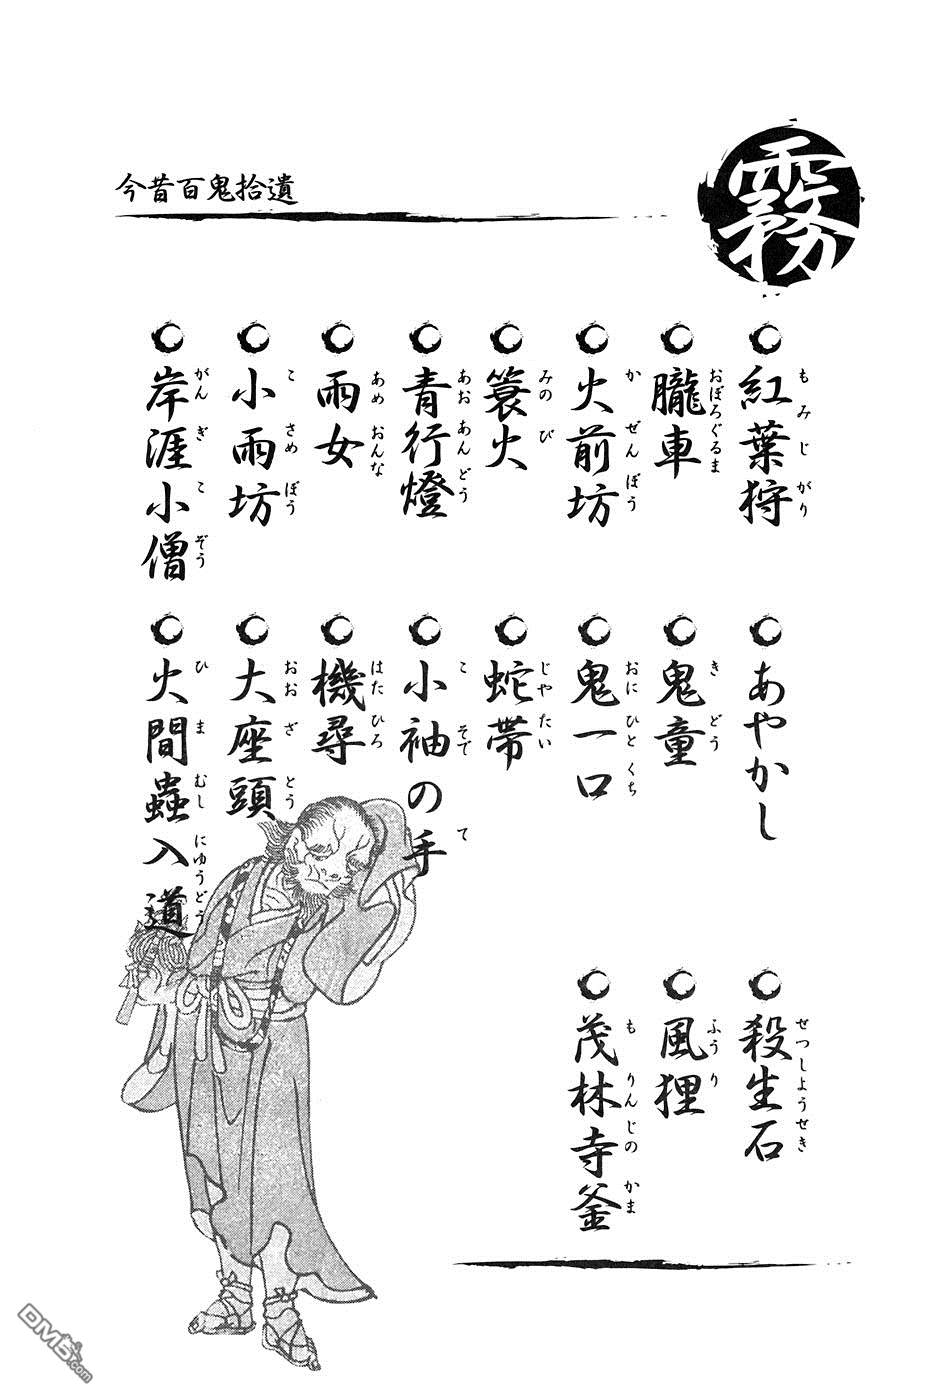 今昔百鬼拾遺
霧
紅葉狩
もみじがり
朧車
おぼろぐるま
火前坊
かぜんぼう
簑火
みのび
青行燈
あおあんどう
雨女
あめおんな
小雨坊
こさめぼう
岸涯小僧
がんぎこぞう
あやかし
鬼童
きどう
鬼一口
おにひとくち
蛇帯
じゃたい
小袖の手
こそでて
機尋
はたひろ
大座頭
おおざとう
火間蟲入道
ひまむしにゅうどう
殺生石
せつしようせき
風狸
ふうり
茂林寺釜
もりんじのかま
DM5